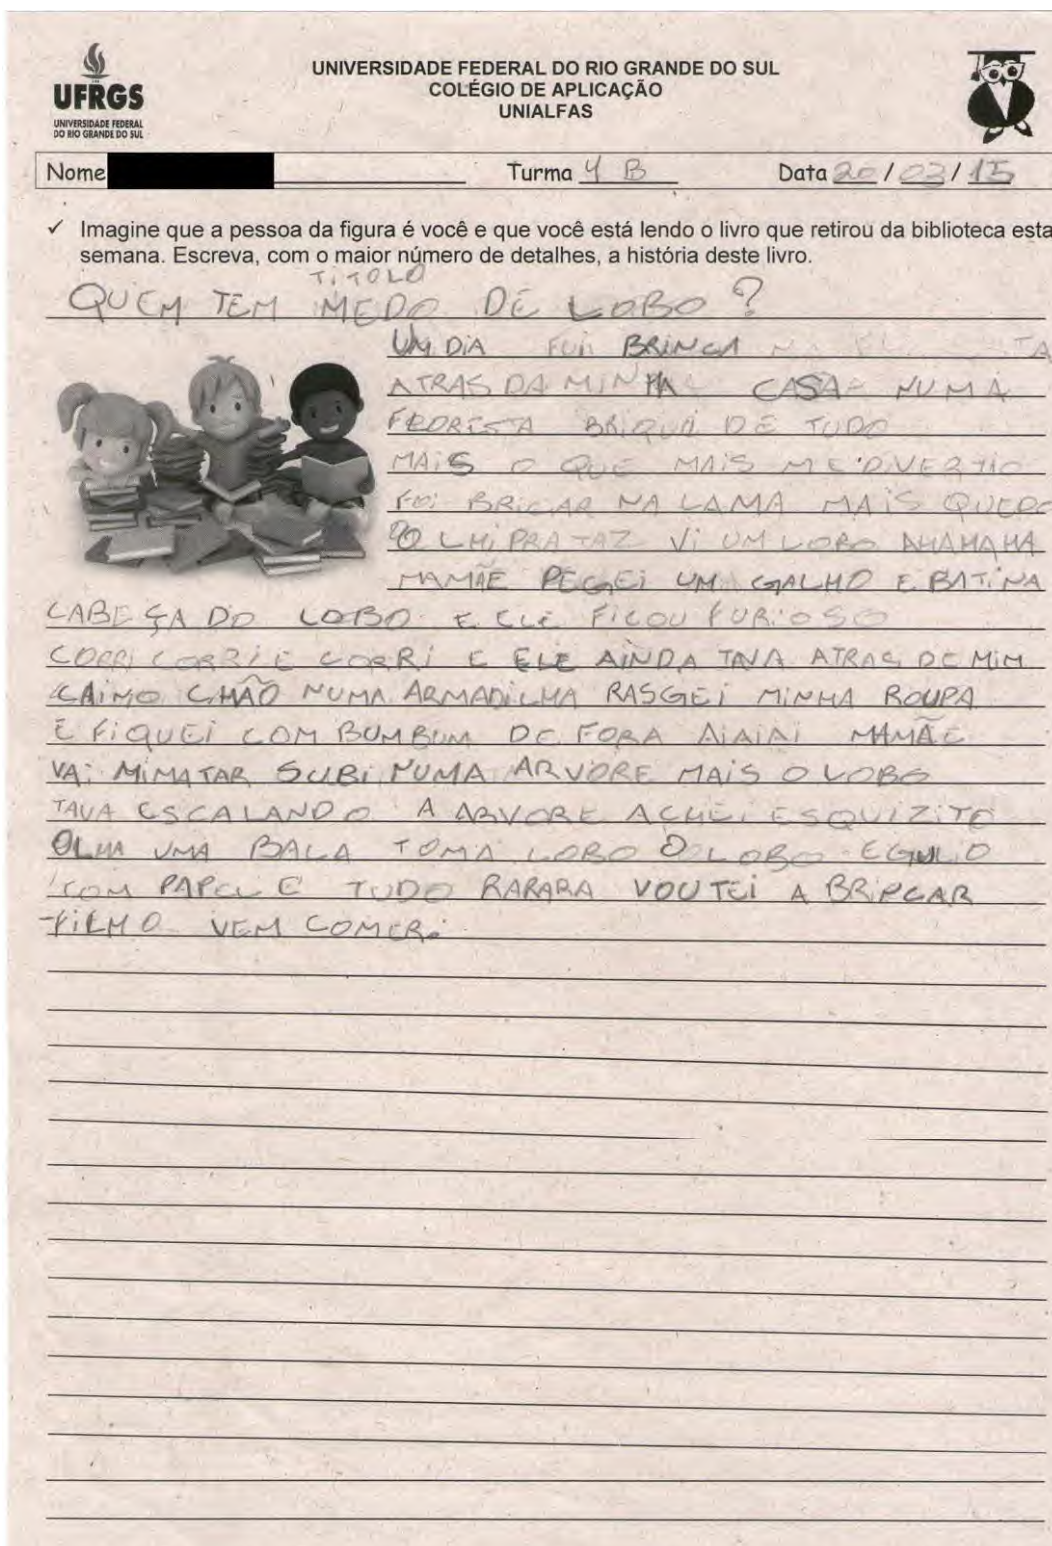 UFRGS
UNIVERSIDADE FEDERAL
DO RIO GRANDE DO SUL
UNIVERSIDADE FEDERAL DO RIO GRANDE DO SUL
COLÉGIO DE APLICAÇÃO
UNIALFAS
Nome Turma 4 B Data 20 / 03 / 15
✓ Imagine que a pessoa da figura é você e que você está lendo o livro que retirou da biblioteca esta
semana. Escreva, com o maior número de detalhes, a história deste livro.
TITOLO
QUEM TEM MEDO DE LOBO ?
UM DIA FUI BRINCA
ATRAS DA MINHA CASA NUMA
FLORESTA BRIQUEI DE TUDO
MAIS O QUE MAIS ME DIVERTIO
FOI BRICAR NA LAMA MAIS QUEDO
OLHI PRA TAZ VI UM LOBO AHAHAHA
MAMÃE PEGEI UM GALHO E BATI NA
CABEÇA DO LOBO E ELE FICOU FURIOSO
CORRI CORRI E CORRI E ELE AINDA TAVA ATRAS DE MIM
CAI NO CHÃO NUMA ARMADILHA RASGEI MINHA ROUPA
E FIQUEI COM BUMBUM DE FORA AIAIAI MAMÃE
VAI MIMATAR SUBI NUMA ARVORE MAIS O LOBO
TAVA ESCALANDO A ARVORE ACHEI ESQUIZITO
OLHA UMA BALA TOMA LOBO O LOBO
COM PAPEL E TUDO RARARA VOUTEI A BRINCAR
FILHO VEM COMER.